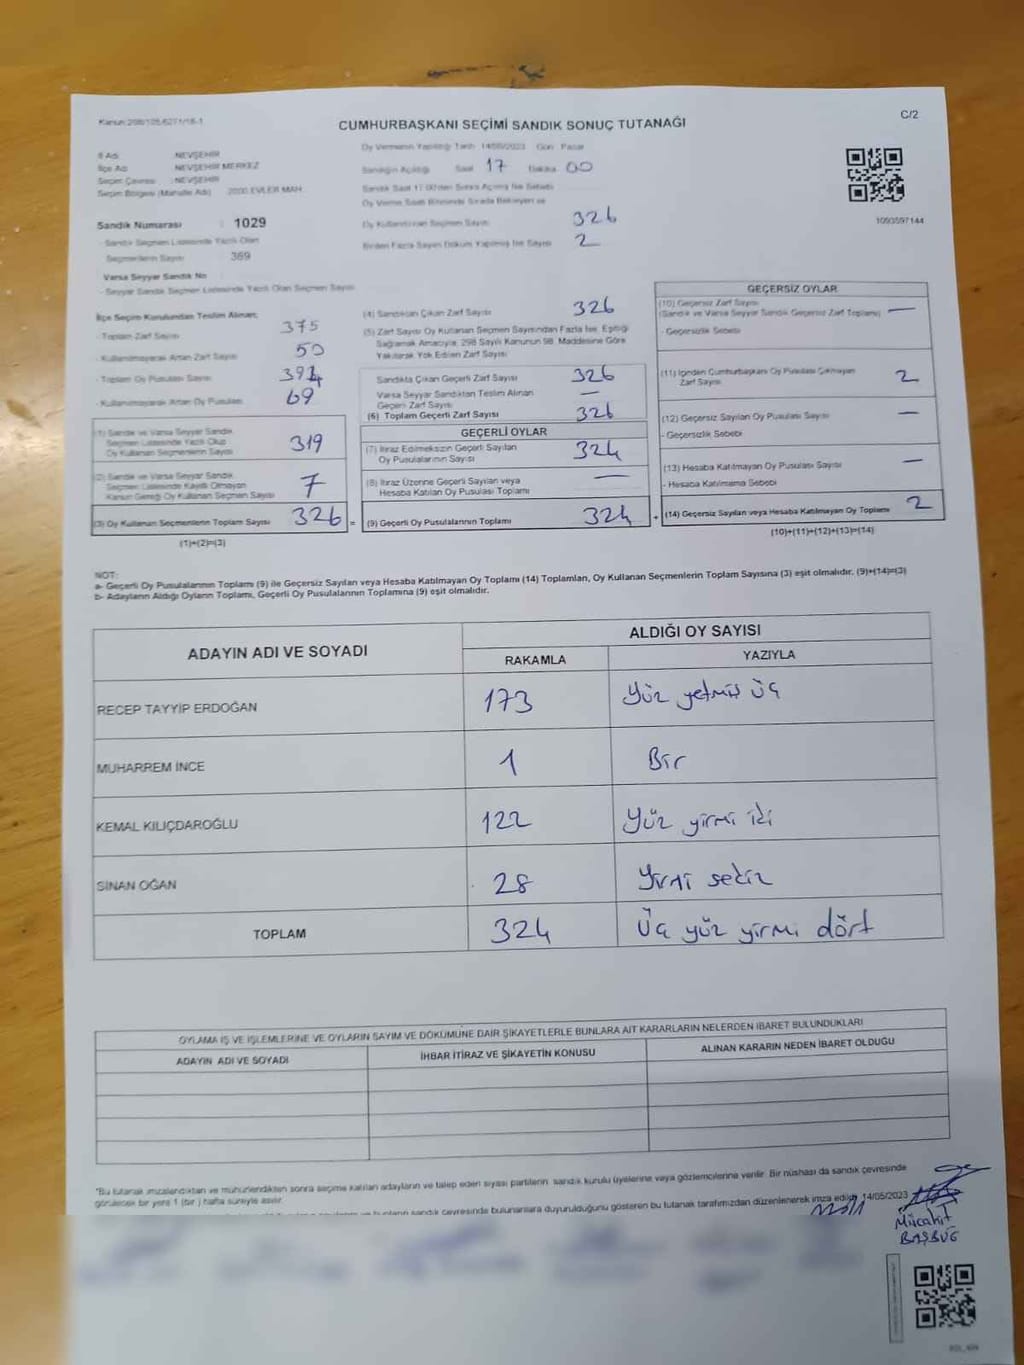 Kanun:298/105,6271/18-1
C/2
CUMHURBAŞKANI SEÇİMİ SANDIK SONUÇ TUTANAĞI
İl Adı : NEVŞEHİR
İlçe Adı : NEVŞEHİR MERKEZ
Seçim Çevresi : NEVŞEHİR
Seçim Bölgesi (Mahalle Adı) 2000 EVLER MAH.
Sandık Numarası : 1029
- Sandık Seçmen Listesinde Yazılı Olan
Seçmenlerin Sayısı 369
Varsa Seyyar Sandık No
- Seyyar Sandık Seçmen Listesinde Yazılı Olan Seçmen Sayısı
Oy Vermenin Yapıldığı Tarih 14/05/2023 Gün Pazar
Sandığın Açıldığı Saat 17 Dakika 00
Sandık Saat 17.00'den Sonra Açılmış İse Sebebi
Oy Verme Saati Bitiminde Sırada Bekleyen ve
Oy Kullandırılan Seçmen Sayısı 326
Birden Fazla Sayım Döküm Yapılmış İse Sayısı 2
1093597144
İlçe Seçim Kurulundan Teslim Alınan;
- Toplam Zarf Sayısı 375
- Kullanılmayarak Artan Zarf Sayısı 50
- Toplam Oy Pusulası Sayısı
- Kullanılmayarak Artan Oy Pusulası 69
(1) Sandık ve Varsa Seyyar Sandık
Seçmen Listesinde Yazılı Olup
Oy Kullanan Seçmenlerin Sayısı 319
(2) Sandık ve Varsa Seyyar Sandık
Seçmen Listesinde Kayıtlı Olmayan
Kanun Gereği Oy Kullanan Seçmen Sayısı 7
(3) Oy Kullanan Seçmenlerin Toplam Sayısı 326 =
(1)+(2)=(3)
(4) Sandıktan Çıkan Zarf Sayısı 326
(5) Zarf Sayısı Oy Kullanan Seçmen Sayısından Fazla İse, Eşitliği
Sağlamak Amacıyla, 298 Sayılı Kanunun 98. Maddesine Göre
Yakılarak Yok Edilen Zarf Sayısı
Sandıkta Çıkan Geçerli Zarf Sayısı 326
Varsa Seyyar Sandıktan Teslim Alınan
Geçerli Zarf Sayısı —
(6) Toplam Geçerli Zarf Sayısı 326
GEÇERLİ OYLAR
(7) İtiraz Edilmeksizin Geçerli Sayılan
Oy Pusulalarının Sayısı 324
(8) İtiraz Üzerine Geçerli Sayılan veya
Hesaba Katılan Oy Pusulası Toplamı —
(9) Geçerli Oy Pusulalarının Toplamı 324 +
GEÇERSİZ OYLAR
(10) Geçersiz Zarf Sayısı
(Sandık ve Varsa Seyyar Sandık Geçersiz Zarf Toplamı) —
- Geçersizlik Sebebi
(11) İçinden Cumhurbaşkanı Oy Pusulası Çıkmayan
Zarf Sayısı 2
(12) Geçersiz Sayılan Oy Pusulası Sayısı —
- Geçersizlik Sebebi
(13) Hesaba Katılmayan Oy Pusulası Sayısı —
- Hesaba Katılmama Sebebi
(14) Geçersiz Sayılan veya Hesaba Katılmayan Oy Toplamı 2
(10)+(11)+(12)+(13)=(14)
NOT:
a- Geçerli Oy Pusulalarının Toplamı (9) ile Geçersiz Sayılan veya Hesaba Katılmayan Oy Toplamı (14) Toplamları, Oy Kullanan Seçmenlerin Toplam Sayısına (3) eşit olmalıdır. (9)+(14)=(3)
b- Adayların Aldığı Oyların Toplamı, Geçerli Oy Pusulalarının Toplamına (9) eşit olmalıdır.
ADAYIN ADI VE SOYADI ALDIĞI OY SAYISI
RAKAMLA YAZIYLA
RECEP TAYYİP ERDOĞAN 173 Yüz yetmiş üç
MUHARREM İNCE 1 Bir
KEMAL KILIÇDAROĞLU 122 Yüz yirmi iki
SİNAN OĞAN 28 Yirmi sekiz
TOPLAM 324 Üç yüz yirmi dört
OYLAMA İŞ VE İŞLEMLERİNE VE OYLARIN SAYIM VE DÖKÜMÜNE DAİR ŞİKAYETLERLE BUNLARA AİT KARARLARIN NELERDEN İBARET BULUNDUKLARI
ADAYIN ADI VE SOYADI İHBAR İTİRAZ VE ŞİKAYETİN KONUSU ALINAN KARARIN NEDEN İBARET OLDUĞU
"Bu tutanak imzalandıktan ve mühürlendikten sonra seçime katılan adayların ve talep eden siyasi partilerin sandık kurulu üyelerine veya gözlemcilerine verilir. Bir nüshası da sandık çevresinde
görülecek bir yere 1 (bir) hafta süreyle asılır.
sandık çevresinde bulunanlara duyurulduğunu gösteren bu tutanak tarafımızdan düzenlenerek imza edildi. 14/05/2023
Mücahit
BAŞBUĞ